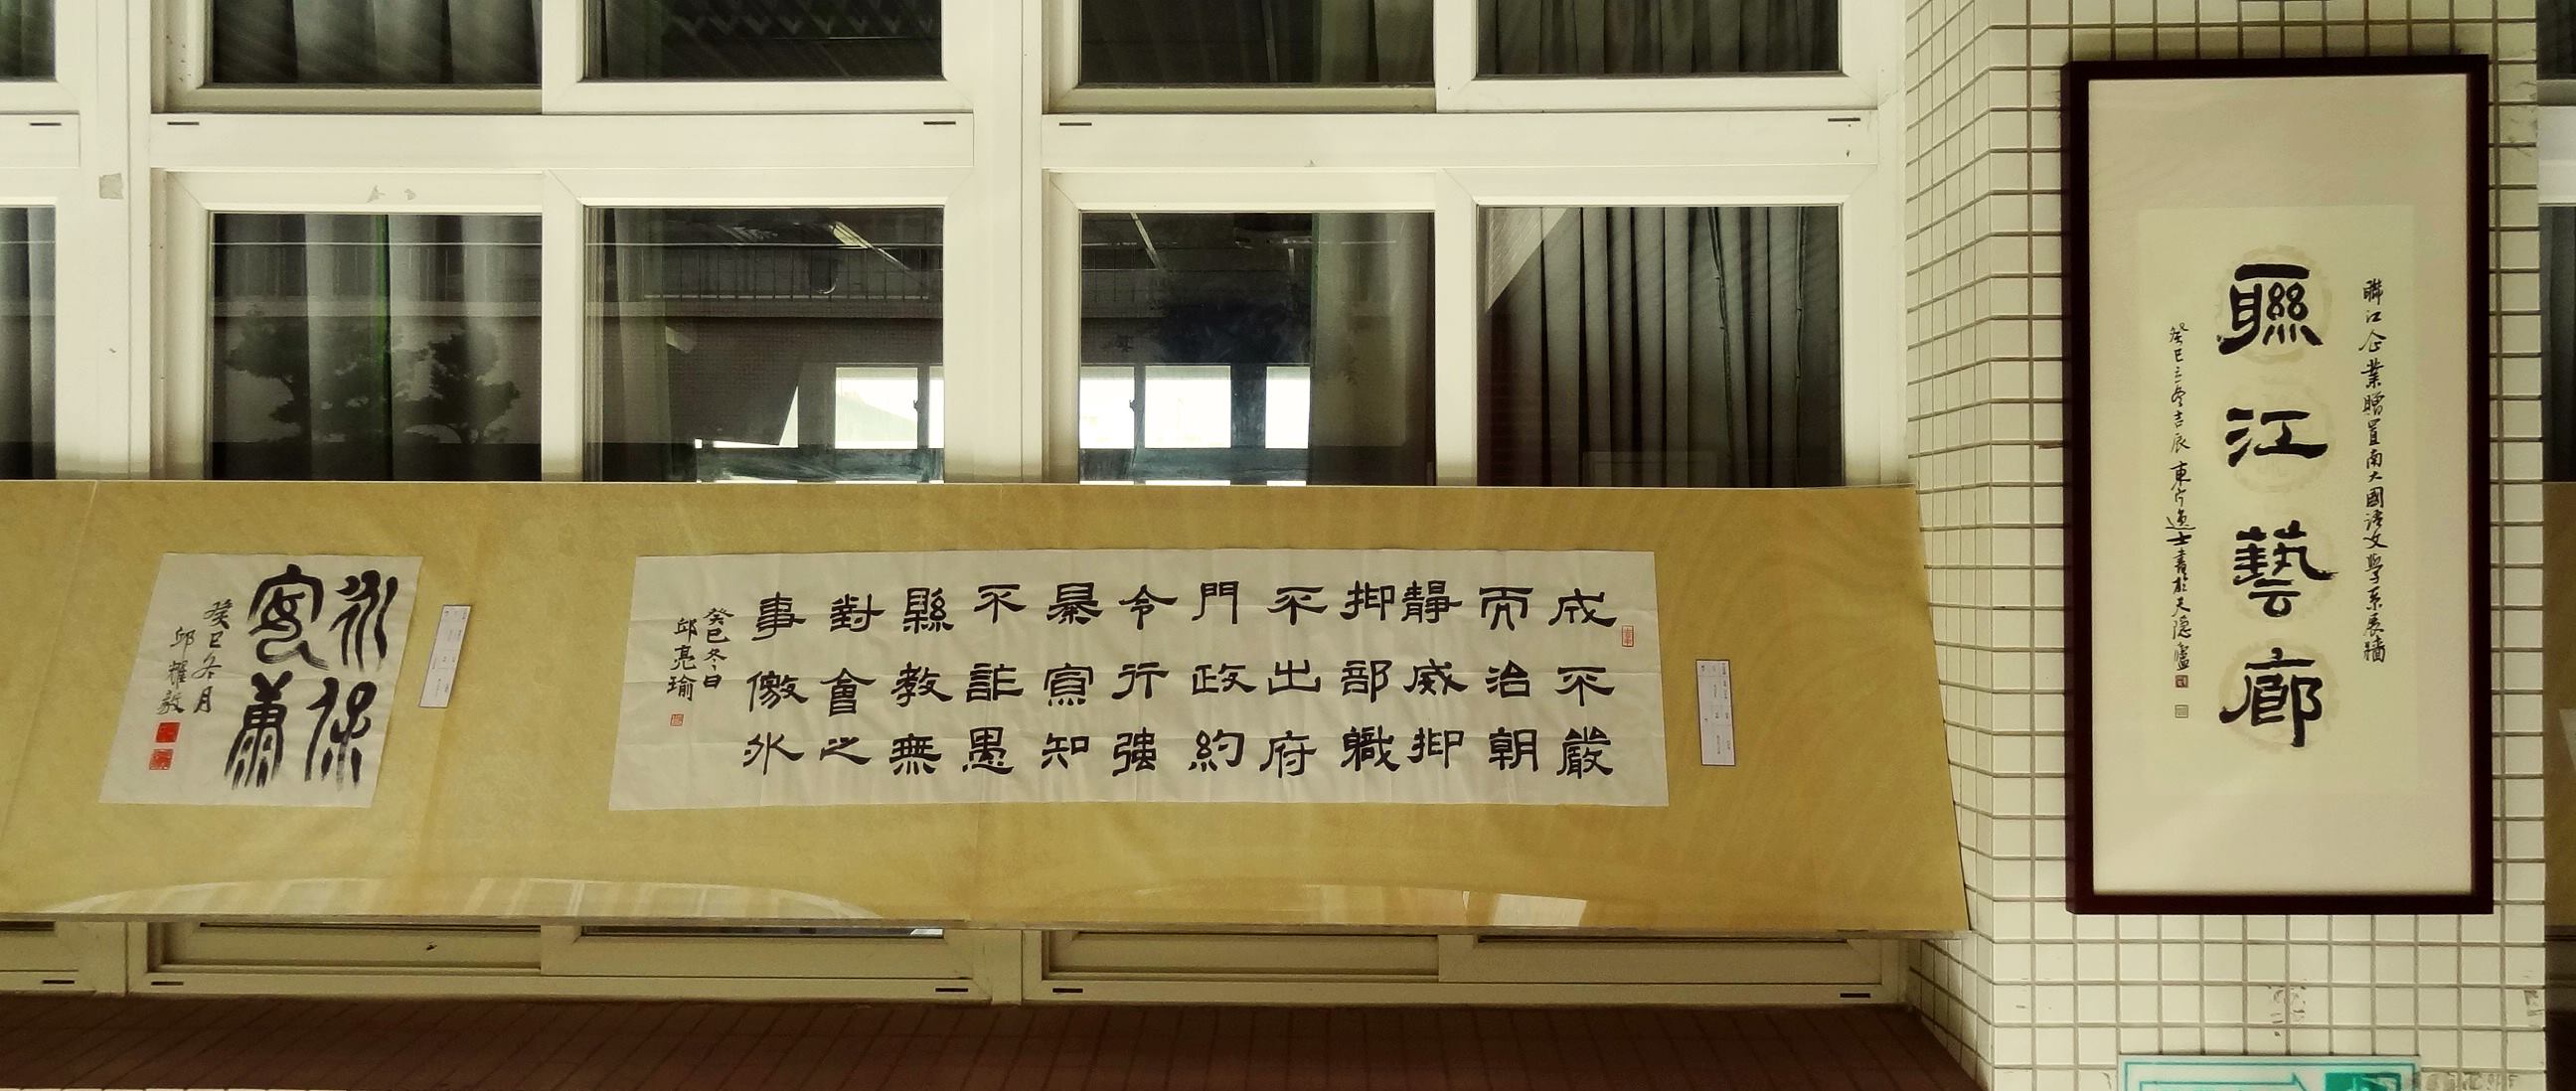 聯江企業贈置南大國語文學系展牆
聯江藝廊
癸巳三冬吉辰東宁逸士書於天隱廬
成不嚴
而治朝
靜威抑
抑部職
不出府
門政約
令行強
暴寬知
不詐愚
縣教無
對會之
事儌外
癸巳冬日
邱亮瑜
永保
寔康
癸巳冬月
邱耀毅